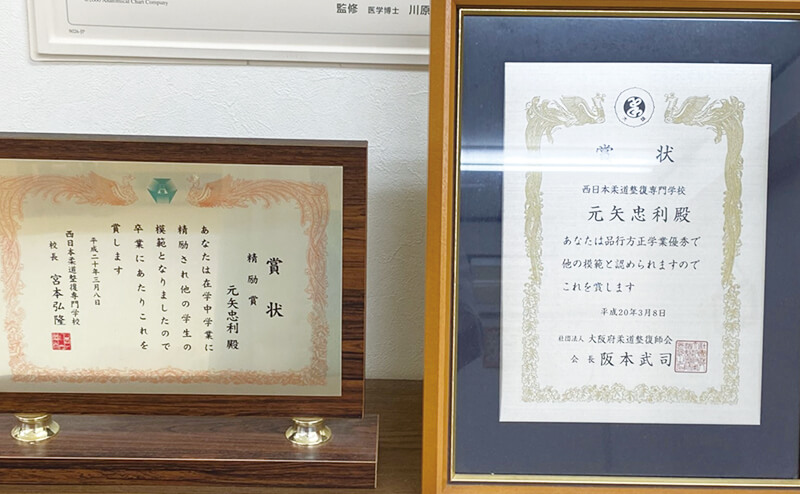 ©2000 Anatomical Chart Company
監修 医学博士 川原
賞状
精励賞
元矢忠利 殿
あなたは在学中学業に
精励され他の学生の
模範となりましたので
卒業にあたりこれを
賞します
平成二十年三月八日
西日本柔道整復専門学校
校長 宮本弘隆
賞 状
西日本柔道整復専門学校
元矢忠利殿
あなたは品行方正学業優秀で
他の模範と認められますので
これを賞します
平成20年3月8日
社団法人 大阪府柔道整復師会
会長 阪本武司